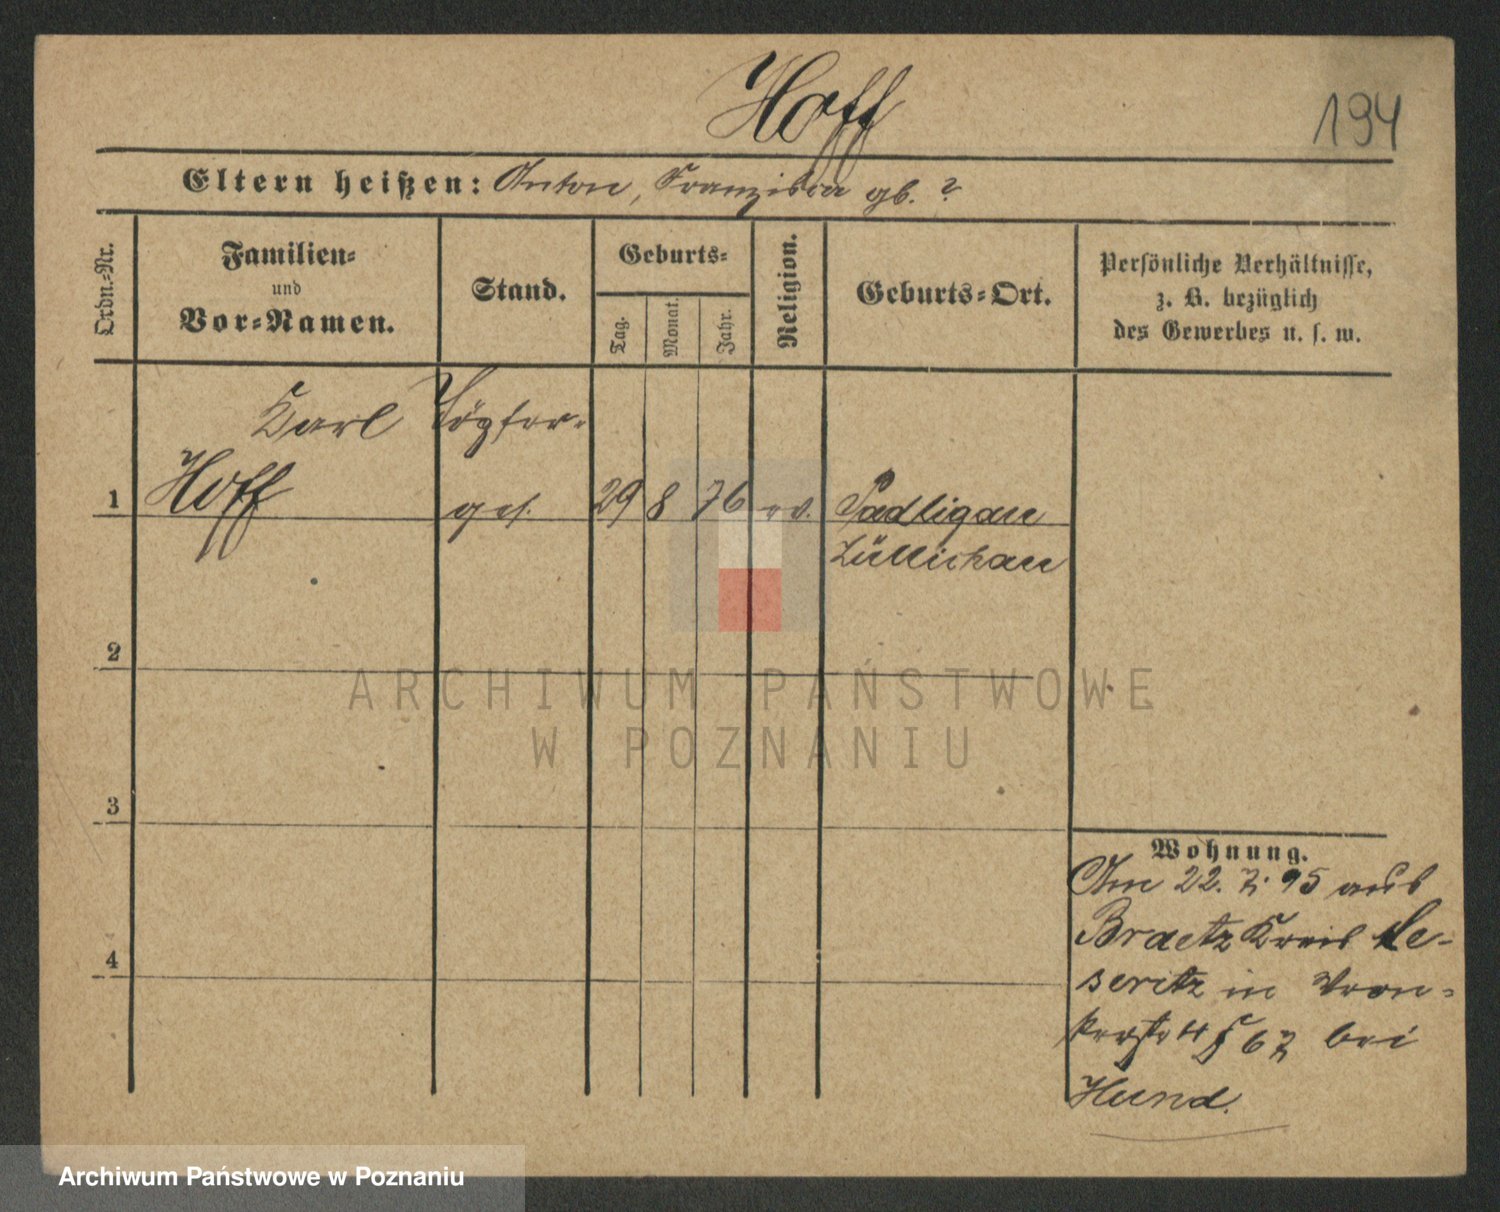 Hoff
194
Eltern heißen: Anton, Franziska gb. ?
Ordn.-Nr.
Familien-
und
Vor-Namen.
Stand.
Geburts-
Tag.
Monat.
Jahr.
Religion.
Geburts-Ort.
Persönliche Verhältnisse,
z. B. bezüglich
des Gewerbes u. s. w.
Karl Töpfer-
1 Hoff ges. 29 8 76 ev. Padligar
Züllichau
2
3
4
Wohnung.
Am 22. 7. 95 aus
Braetz Kreis Me-
seritz in Wron-
kerstr 4 67 bei
Hund.
ARCHIWUM PAŃSTWOWE
W POZNANIU
Archiwum Państwowe w Poznaniu